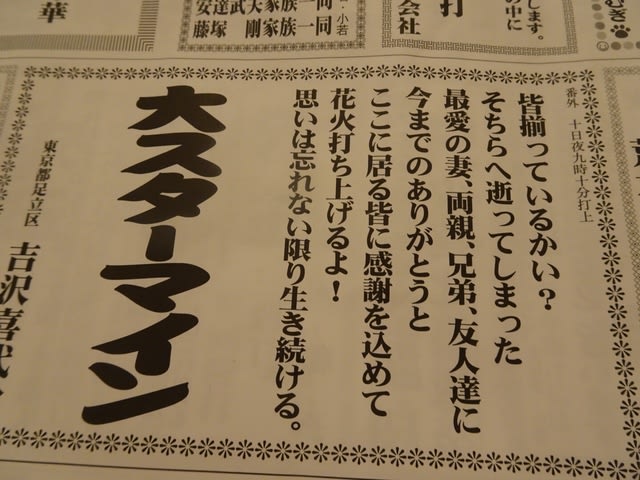 華
安達武大家族一同
藤塚　剛家族一同
・小若
会社
打
します。
の中に
むぎ
番外　十日夜九時十分打上
皆揃っているかい？
そちらへ逝ってしまった
最愛の妻、両親、兄弟、友人達に
今までのありがとうと
ここに居る皆に感謝を込めて
花火打ち上げるよ！
思いは忘れない限り生き続ける。
大スターマイン
東京都足立区　吉沢喜武